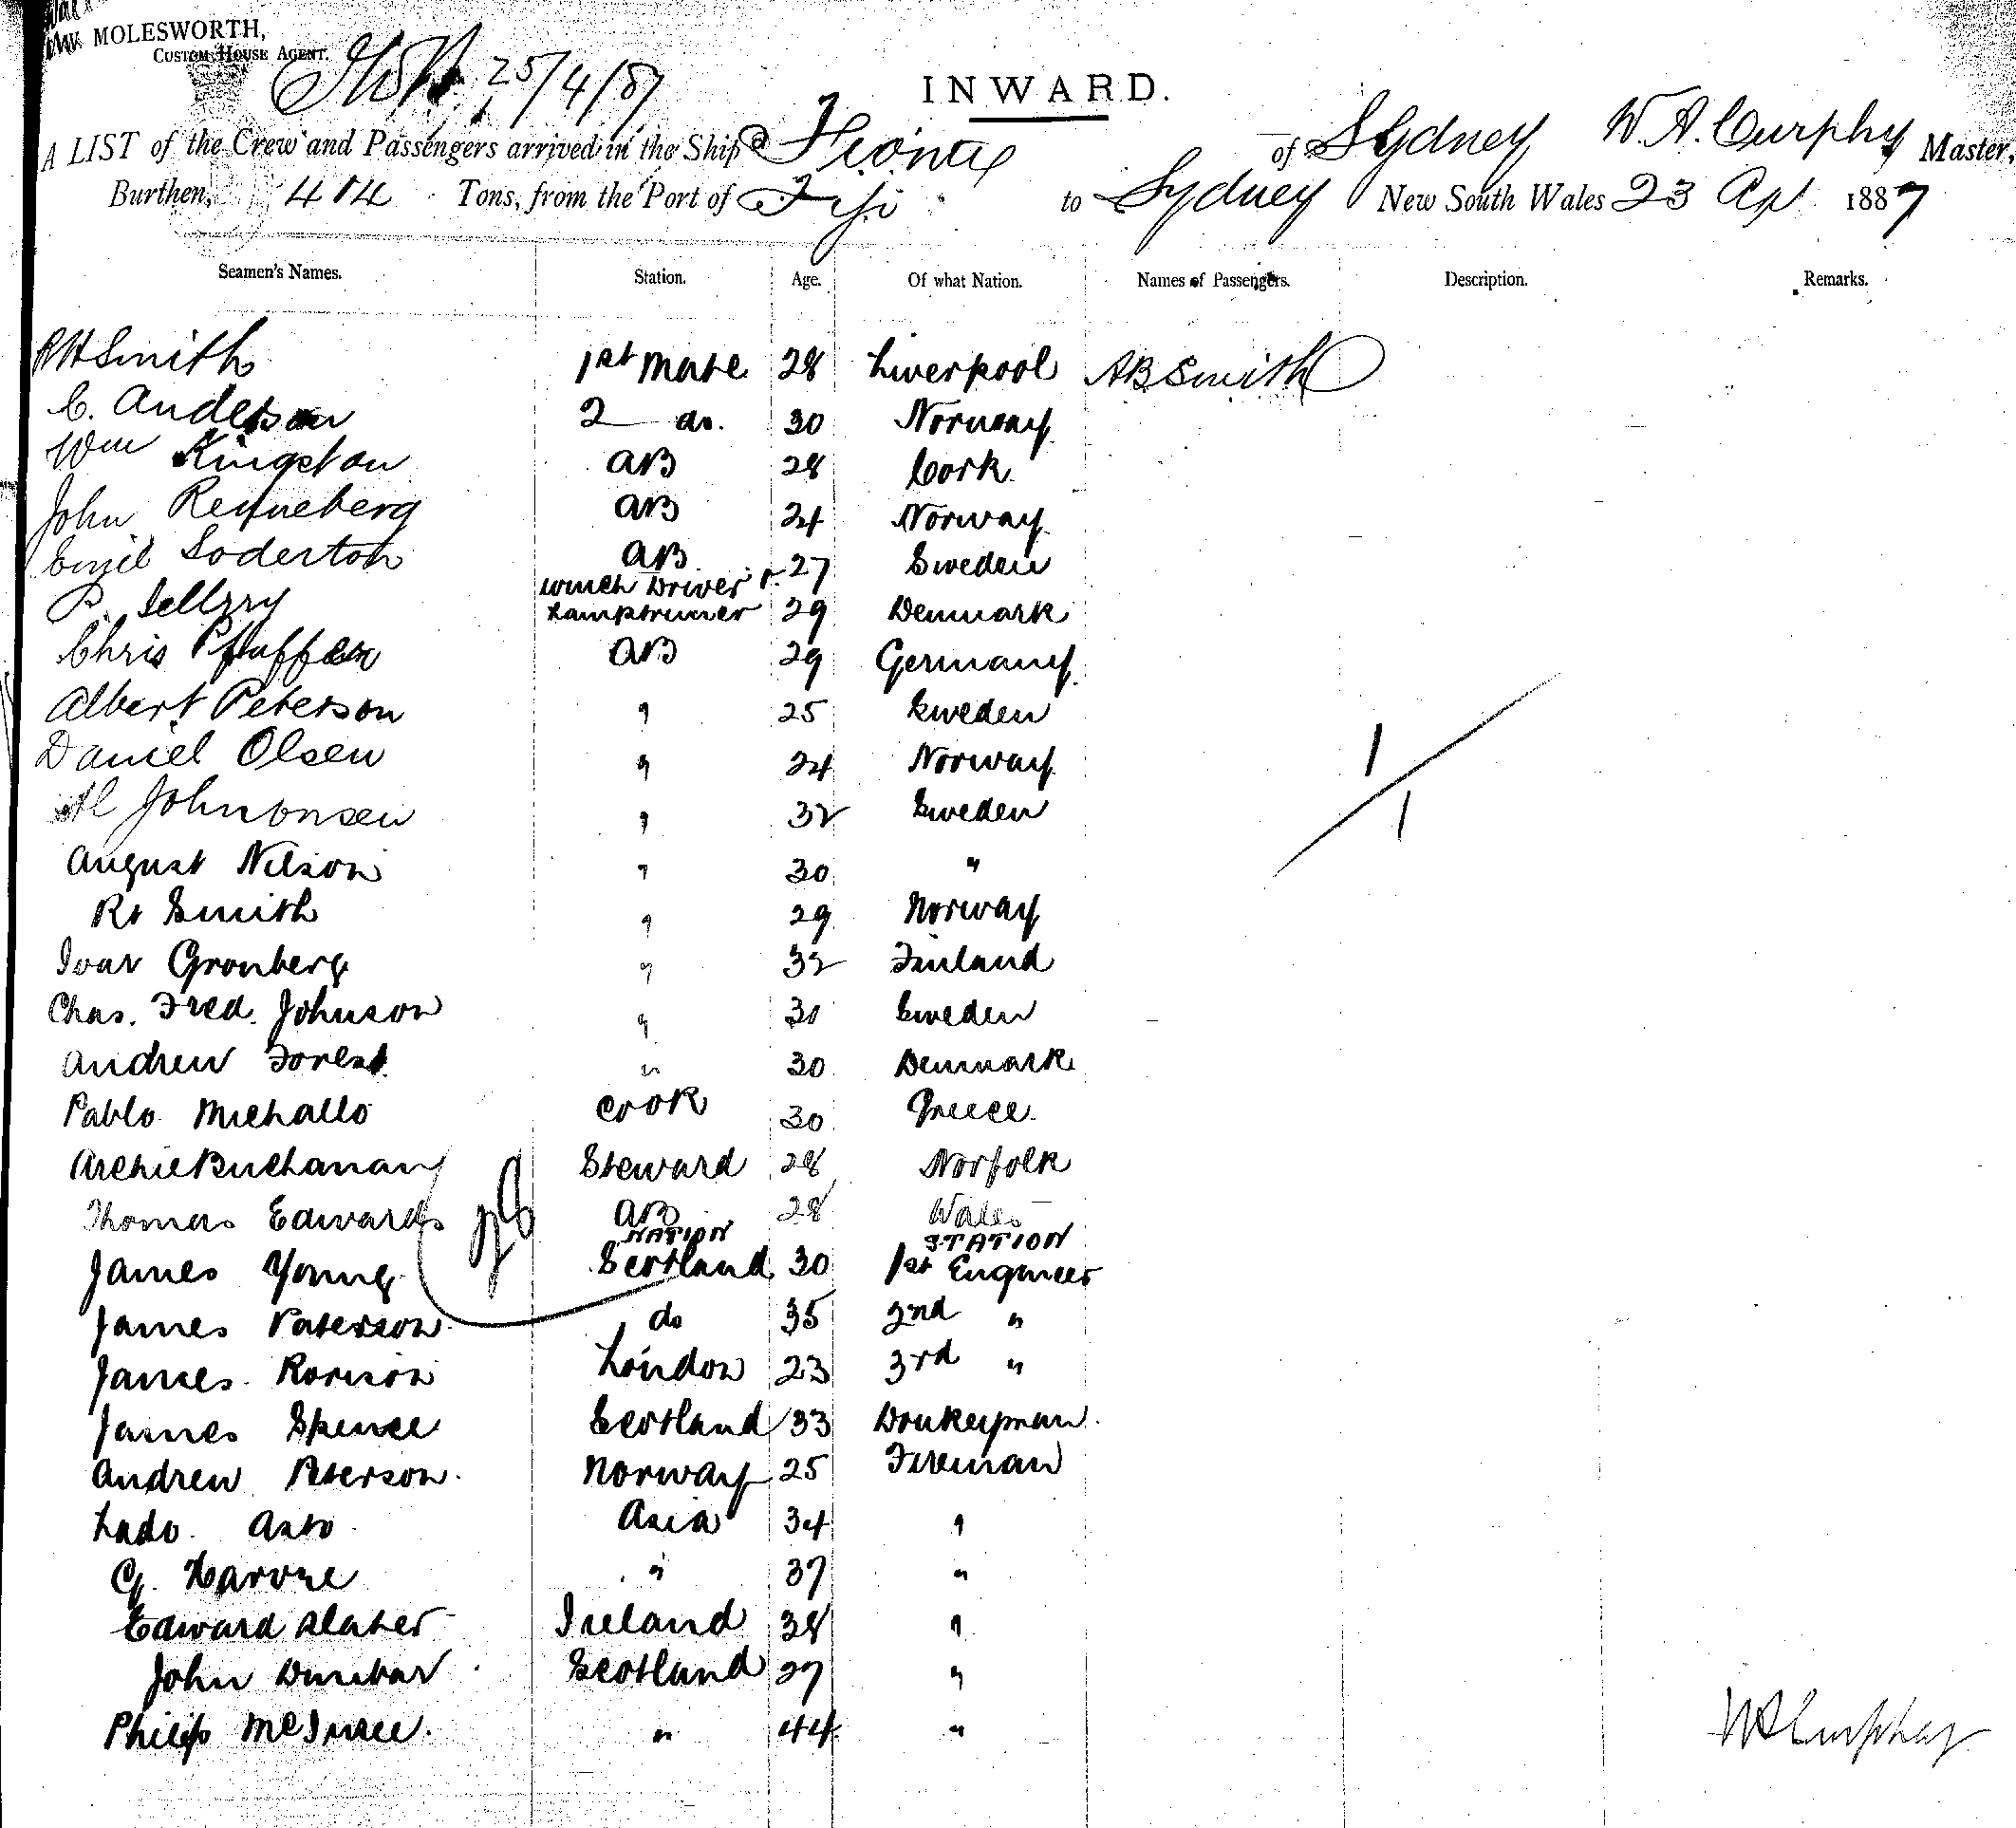 MOLESWORTH,
CUSTOM HOUSE AGENT.
25/4/87
INWARD.
A LIST of the Crew and Passengers arrived in the Ship Fiona of Sydney W. A. Curphey Master,
Burthen, 414 Tons, from the Port of Fiji to Sydney New South Wales 23 Ap 1887
Seamen's Names. Station. Age. Of what Nation. Names of Passengers. Description. Remarks.
RH Smith 1st Mate 28 Liverpool AB Smith
C. Anderson 2 do. 30 Norway
Wm Kingston AB 28 Cork
John Renneberg AB 24 Norway
Emil Soderton AB 27 Sweden
Winch Driver &
P. Lamptrimer 29 Denmark
Chris AB 29 Germany
Albert Peterson " 25 Sweden
Daniel Olsen " 24 Norway
Johnonsen " 32 Sweden
August Nilson " 30 "
Rt Smith " 29 Norway
Ivar Gronberg " 32 Finland
Chas. Fred. Johnson " 30 Sweden
Andrew Forest " 30 Denmark
Pablo Michallo Cook 30 Greece
Archie Buchanan Steward 28 Norfolk
Thomas Edwards AB 28 Wales
NATION STATION
James Young Scotland 30 1st Engineer
James Paterson do 35 2nd "
James Rorison London 23 3rd "
James Spence Scotland 33 Donkeyman
Andrew Peterson Norway 25 Fireman
Lado Asto Asia 34 "
" 37 "
Edward Slater Ireland 38 "
John Dunbar Scotland 27 "
Philip " 44 "
WA Curphey